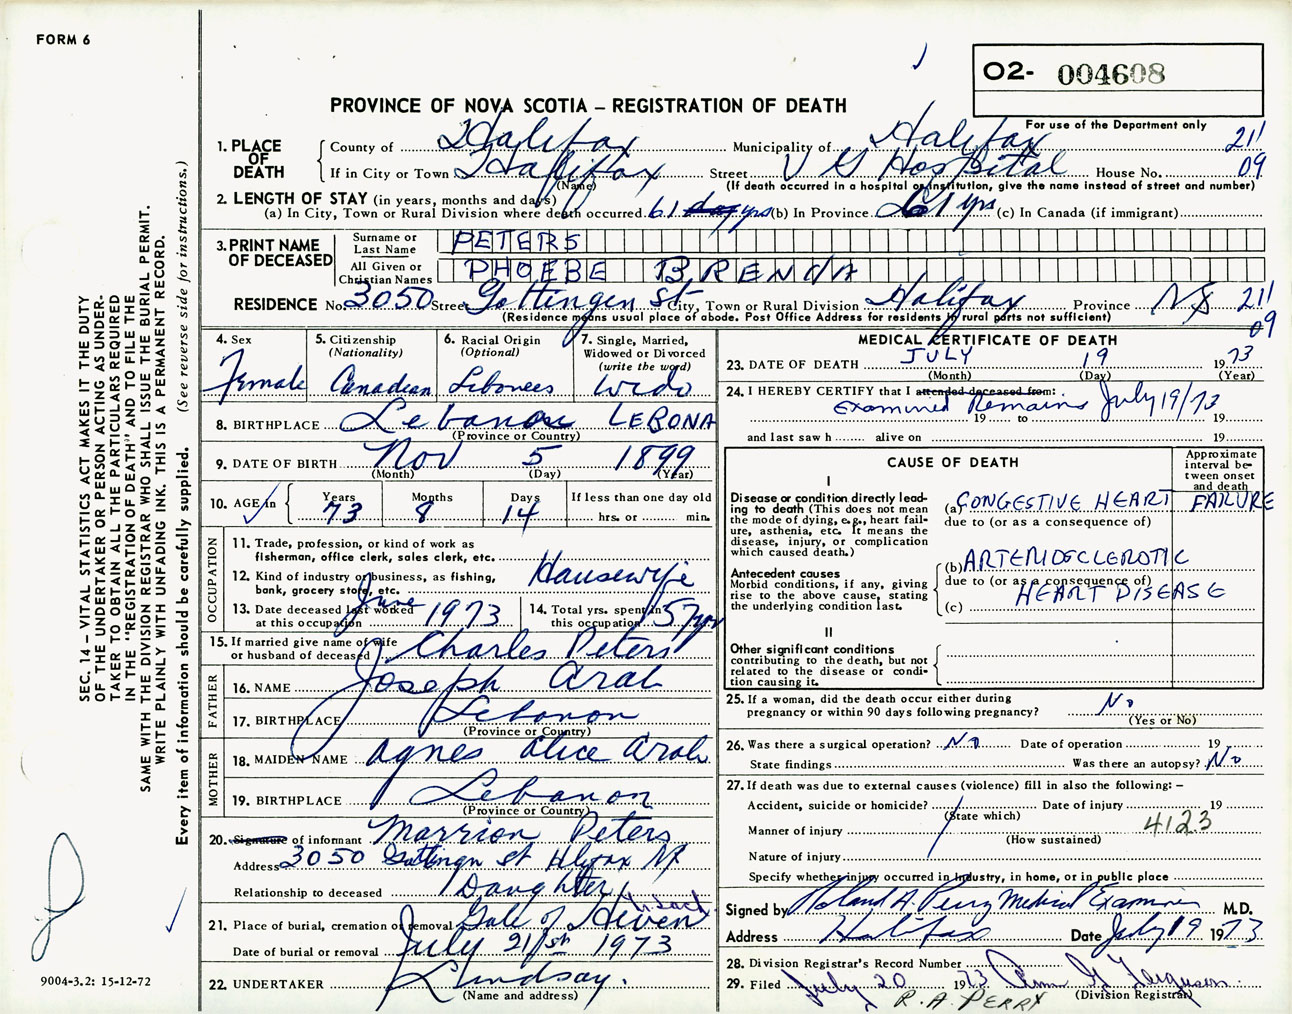 FORM 6
O2- 004608
PROVINCE OF NOVA SCOTIA – REGISTRATION OF DEATH
For use of the Department only
1. PLACE OF DEATH
County of Halifax Municipality of Halifax 211
If in City or Town Halifax Street V G Hospital House No. 09
(Name) (If death occurred in a hospital or institution, give the name instead of street and number)
2. LENGTH OF STAY (in years, months and days)
(a) In City, Town or Rural Division where death occurred. 61 yrs (b) In Province 61 yrs (c) In Canada (if immigrant)
3. PRINT NAME OF DECEASED
Surname or Last Name PETERS
All Given or Christian Names PHOEBE BRENDA
RESIDENCE No. 3050 Street Gottingen St City, Town or Rural Division Halifax Province NS 211
(Residence means usual place of abode. Post Office Address for residents in rural parts not sufficient) 09
4. Sex Female
5. Citizenship (Nationality) Canadian
6. Racial Origin (Optional) Lebonees
7. Single, Married, Widowed or Divorced (write the word) Wido
8. BIRTHPLACE Lebanon LEBONA
(Province or Country)
9. DATE OF BIRTH Nov 5 1899
(Month) (Day) (Year)
10. AGE in Years 73 Months 8 Days 14 If less than one day old
hrs. or min.
OCCUPATION
11. Trade, profession, or kind of work as fisherman, office clerk, sales clerk, etc.
12. Kind of industry or business, as fishing, bank, grocery store, etc. Housewife
13. Date deceased last worked at this occupation June 1973
14. Total yrs. spent in this occupation 57 yrs
15. If married give name of wife or husband of deceased Charles Peters
FATHER
16. NAME Joseph Arab
17. BIRTHPLACE Lebanon
(Province or Country)
MOTHER
18. MAIDEN NAME Agnes Alice Arab
19. BIRTHPLACE Lebanon
(Province or Country)
20. Signature of informant Marrion Peters
Address 3050 Gottingn St Hlifax NS
Relationship to deceased Daughter
21. Place of burial, cremation or removal Gate of Heven
Date of burial or removal July 21st 1973
22. UNDERTAKER Lindsay.
(Name and address)
MEDICAL CERTIFICATE OF DEATH
23. DATE OF DEATH JULY 19 1973
(Month) (Day) (Year)
24. I HEREBY CERTIFY that I attended deceased from:
Examined Remains July 19/73
19 to 19
and last saw h alive on 19
CAUSE OF DEATH
Approximate interval between onset and death
I
Disease or condition directly leading to death (This does not mean the mode of dying, e.g., heart failure, asthenia, etc. It means the disease, injury, or complication which caused death.)
(a) CONGESTIVE HEART FAILURE
due to (or as a consequence of)
Antecedent causes
Morbid conditions, if any, giving rise to the above cause, stating the underlying condition last.
(b) ARTERIOSCLEROTIC
due to (or as a consequence of)
(c) HEART DISEASE
II
Other significant conditions
contributing to the death, but not related to the disease or condition causing it.
25. If a woman, did the death occur either during pregnancy or within 90 days following pregnancy? No
(Yes or No)
26. Was there a surgical operation? No Date of operation 19
State findings Was there an autopsy? No
27. If death was due to external causes (violence) fill in also the following: –
Accident, suicide or homicide? Date of injury 19
(State which)
Manner of injury 4123
(How sustained)
Nature of injury
Specify whether injury occurred in industry, in home, or in public place
Signed by Roland A. Perry Medical Examiner M.D.
Address Halifax Date July 19 1973
28. Division Registrar's Record Number
29. Filed July 20 1973 Ann G Ferguson
R.A. PERRY (Division Registrar)
SEC. 14 – VITAL STATISTICS ACT MAKES IT THE DUTY
OF THE UNDERTAKER OR PERSON ACTING AS UNDERTAKER
TO OBTAIN ALL THE PARTICULARS REQUIRED
IN THE "REGISTRATION OF DEATH" AND TO FILE THE
SAME WITH THE DIVISION REGISTRAR WHO SHALL ISSUE THE BURIAL PERMIT.
WRITE PLAINLY WITH UNFADING INK. THIS IS A PERMANENT RECORD.
Every item of information should be carefully supplied. (See reverse side for instructions.)
9004-3.2: 15-12-72